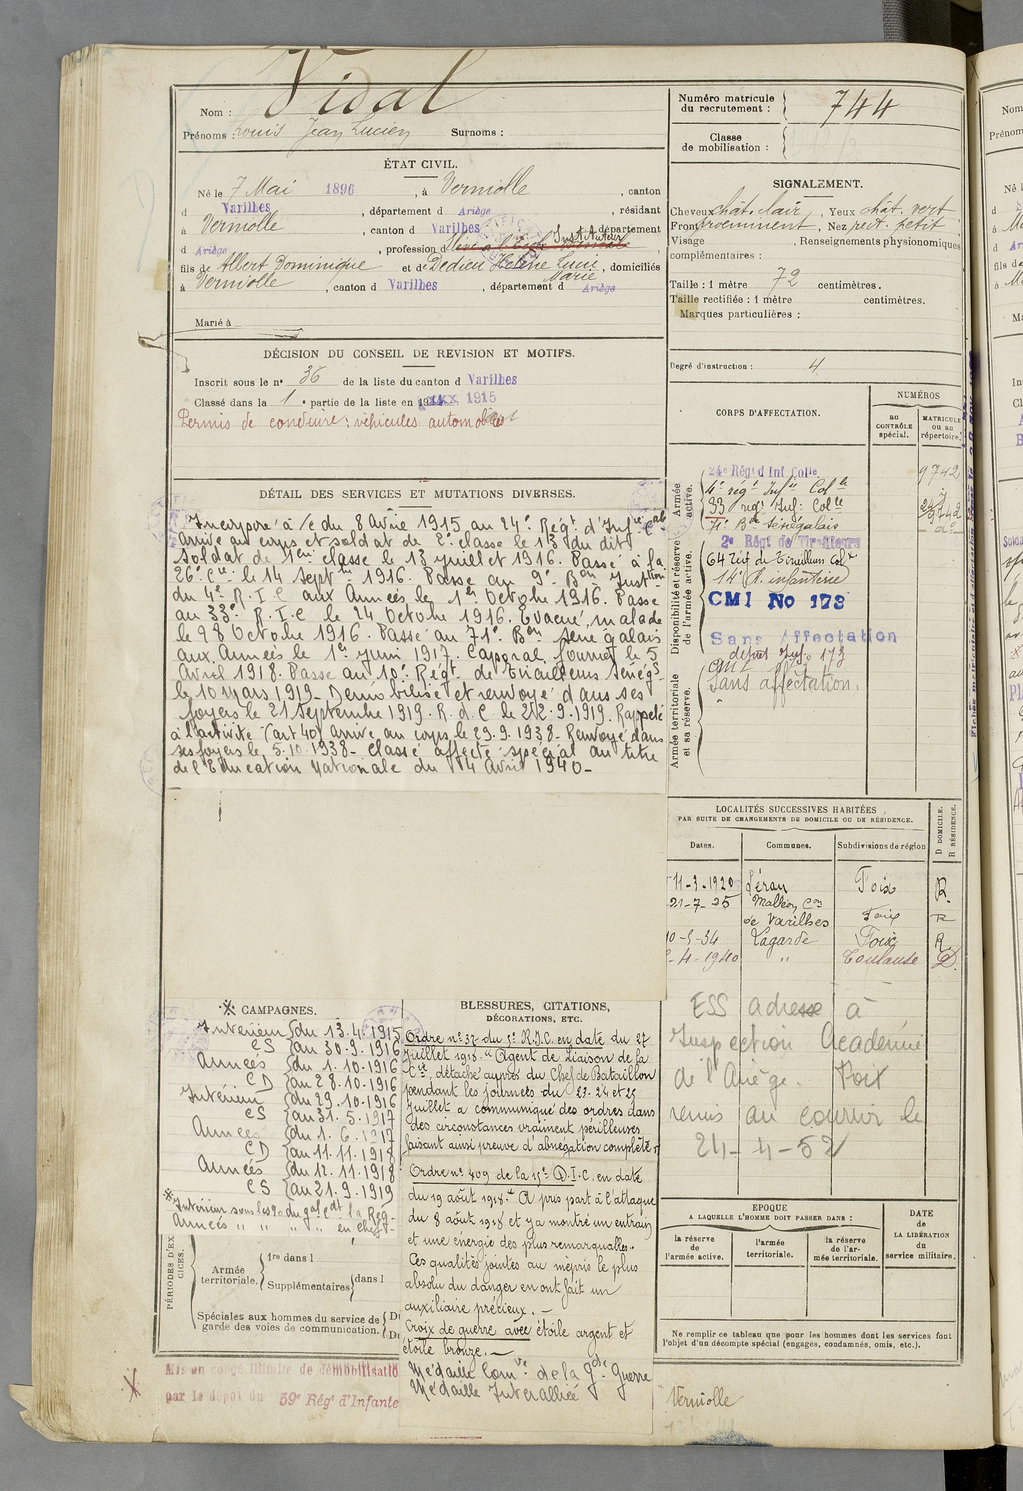 Nom : Vidal
Prénoms : Louis Jean Lucien Surnoms :
Numéro matricule du recrutement : 744
Classe de mobilisation :
ÉTAT CIVIL.
Né le 7 Mai 1896, à Verniolle, canton
d Varilhes, département d Ariège, résidant
à Verniolle, canton d Varilhes, département
d Ariège, profession d Instituteur
fils de Albert Dominique et de Dedieu Hélène Lucie Marie, domiciliés
à Verniolle, canton d Varilhes, département d Ariège
Marié à
SIGNALEMENT.
Cheveux chât. clair, Yeux chât. vert
Front proéminent, Nez rect. petit
Visage , Renseignements physionomiques
complémentaires :
Taille : 1 mètre 72 centimètres.
Taille rectifiée : 1 mètre centimètres.
Marques particulières :
Degré d'instruction : 4
DÉCISION DU CONSEIL DE REVISION ET MOTIFS.
Inscrit sous le n° 36 de la liste du canton d Varilhes
Classé dans la 1e partie de la liste en 1915
Permis de conduire : véhicules automobiles
CORPS D'AFFECTATION.
NUMÉROS
au CONTRÔLE spécial.
MATRICULE ou au répertoire.
Armée active.
24e Régt d Inf Colle
9742
4e régt Infie Colle
33 régt Inf. Colle
71e Bn Sénégalais
Disponibilité et réserve de l'armée active.
2e Régt de Tirailleurs
64 régt de Tirailleurs Colx
14e R. infanterie
CMI No 173
Sans Affectation
dépôt Inf. 173
Armée territoriale et sa réserve.
Sans affectation.
DÉTAIL DES SERVICES ET MUTATIONS DIVERSES.
Incorporé à /c du 8 Avril 1915 au 24e Régt d'Infie Cale
arrivé au corps et soldat de 2e classe le 13 du dit
Soldat de 1ere classe le 13 juillet 1916. Passé à la
26e Cie le 14 Septbre 1916. Passé au 9e Bon Instion
du 4e R.I.C aux Armées le 1er Octobre 1916. Passé
au 33e R.I.C le 24 Octobre 1916. Evacué, malade
le 28 Octobre 1916. Passé au 71e Bon Sénégalais
aux Armées le 1er juin 1917. Caporal fourrier le 5
Avril 1918. Passé au 10e Régt de Tirailleurs Sénégs
le 10 Mars 1919. Démobilisé et renvoyé dans ses
foyers le 21 Septembre 1919. R. d. C le 22.9.1919. Rappelé
à l'activité (art 40) arrivé au corps le 29.9.1938. Renvoyé dans
ses foyers le 5.10.1938. Classé affecté spécial au titre
de l'Education Nationale du 14 Avril 1940.
LOCALITÉS SUCCESSIVES HABITÉES
PAR SUITE DE CHANGEMENTS DE DOMICILE OU DE RÉSIDENCE.
D DOMICILE. R RÉSIDENCE.
Dates. Communes. Subdivisions de région
11-3-1920 Léran Foix R.
21-7-25 Malléon Con de Varilhes Foix R
10-5-34 Lagarde Foix R.
4-1940 " Toulouse D.
ESS adresse à
Inspection Académie
de l'Ariège. Foix
remis au courrier le
24-4-52
CAMPAGNES.
Intérieur du 13.4.1915
CS au 30.9.1916
Armées du 1.10.1916
CD au 28.10.1916
Intérieur du 29.10.1916
CS au 31.5.1917
Armées du 1.6.1917
CD au 11.11.1918
Armées du 12.11.1918
CS au 21.9.1919
BLESSURES, CITATIONS,
DÉCORATIONS, ETC.
Ordre n° 37 du 5e R.I.C. en date du 27
Juillet 1918. "Agent de liaison de la
Cie, détaché auprès du Chef de Bataillon
pendant les journées du 23-24 et 25
Juillet a communiqué des ordres dans
des circonstances vraiment périlleuses
faisant ainsi preuve d'abnégation complète"
Ordre n° 409 de la 15e D.I.C. en date
du 19 août 1918. "A pris part à l'attaque
du 8 août 1918 et y a montré un entrain
et une énergie des plus remarquables.
Ces qualités jointes au mépris le plus
absolu du danger en ont fait un
auxiliaire précieux. —
Croix de guerre avec étoile argent et
étoile bronze. —
Médaille Comve de la gde Guerre
Médaille Interalliée
PÉRIODES D'EXERCICES.
Armée territoriale.
1re dans l
Supplémentaires dans l
Spéciales aux hommes du service de
garde des voies de communication.
EPOQUE
A LAQUELLE L'HOMME DOIT PASSER DANS :
la réserve de l'armée active.
l'armée territoriale.
la réserve de l'armée territoriale.
DATE de LA LIBÉRATION du service militaire.
Ne remplir ce tableau que pour les hommes dont les services font
l'objet d'un décompte spécial (engagés, condamnés, omis, etc.).
Mis en congé illimité de démobilisatio
par le dépôt du 59e Régt d'Infante
Verniolle